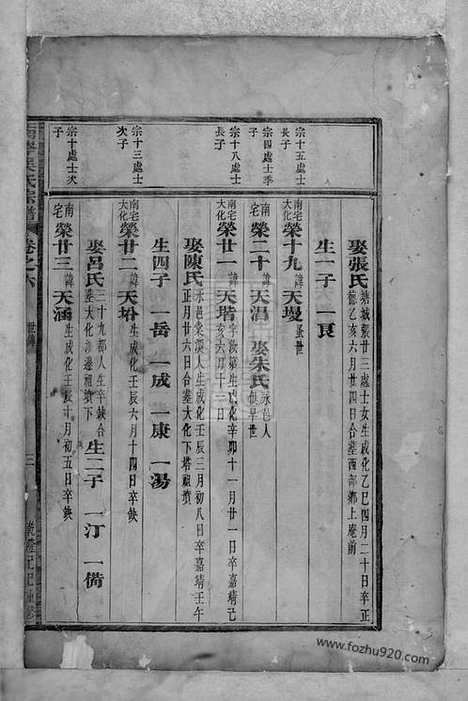 宗十五處士
長子
宗四處士季
子
宗十八處士
長子
宗十三處士
次子
宗十處士次
子
娶張氏 城張廿三處士女生成化乙巳四月二十日卒正
德乙亥六月廿四日合墓西部鄉上庵前
生一子 一良
南宅
大化 榮十九 諱 天墁 蚤世
南宅 榮二十 諱 天淐 娶朱氏 永邑人
俱早世
南宅
大化 榮廿一 諱 天堦 字 第生成化辛卯十一月廿一日卒嘉靖己
亥六月十三日
娶陳氏 永邑棠溪人生成化壬辰三月初八日卒嘉靖壬午
正月廿六日合墓大化下塔祖墳
生四子 一岳 一成 一康 一湯
南宅
大化 榮廿二 諱 天坋 生成化壬辰六月十四日卒缺
娶呂氏 三十九都人生卒缺合
墓大化 邊祖墳下 生二子 一汀 一備
南
宅 榮廿三 諱 天涵 生成化壬辰十月初五日卒缺
吳氏宗譜
卷之六
世傳
三
乾隆己巳重修
www.fozhu920.com